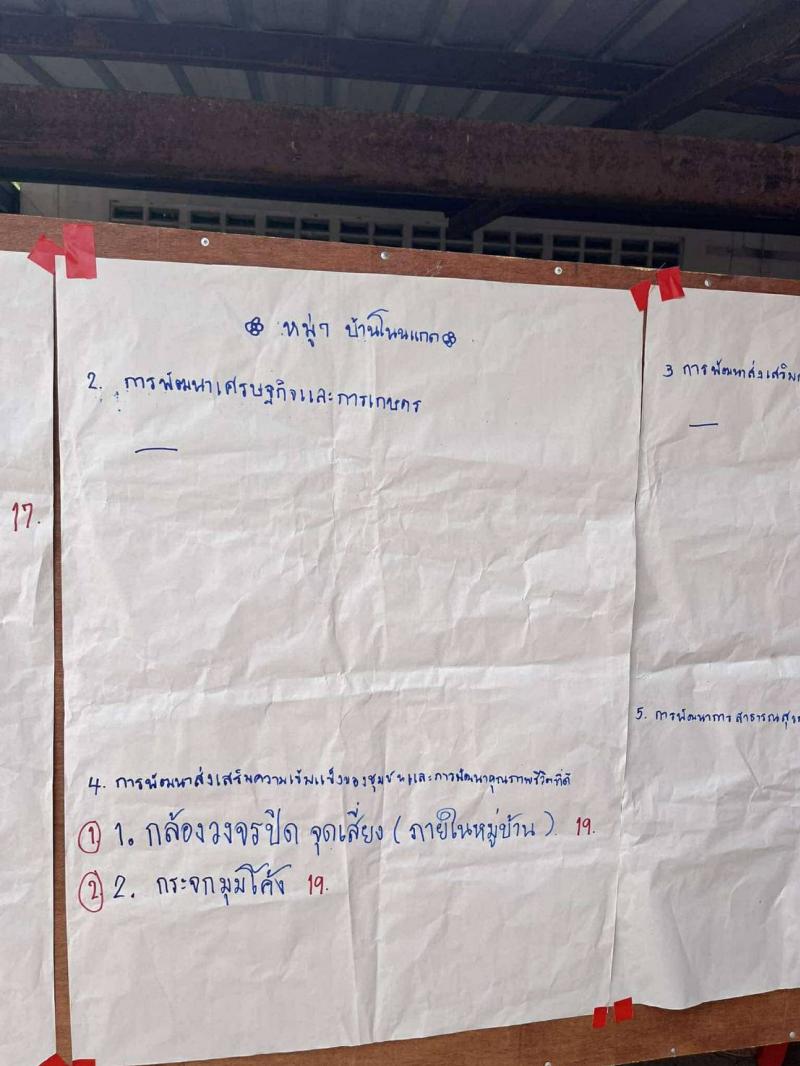 17.
หมู่ 7 บ้านโนนแกด
2. การพัฒนาเศรษฐกิจและการเกษตร
4. การพัฒนาส่งเสริมความเข้มแข็งของชุมชนและการพัฒนาคุณภาพชีวิตที่ดี
① 1. กล้องวงจรปิด จุดเสี่ยง ( ภายในหมู่บ้าน ) 19.
② 2. กระจกมุมโค้ง 19.
3 การพัฒนาส่งเสริม
5. การพัฒนาการสาธารณสุข